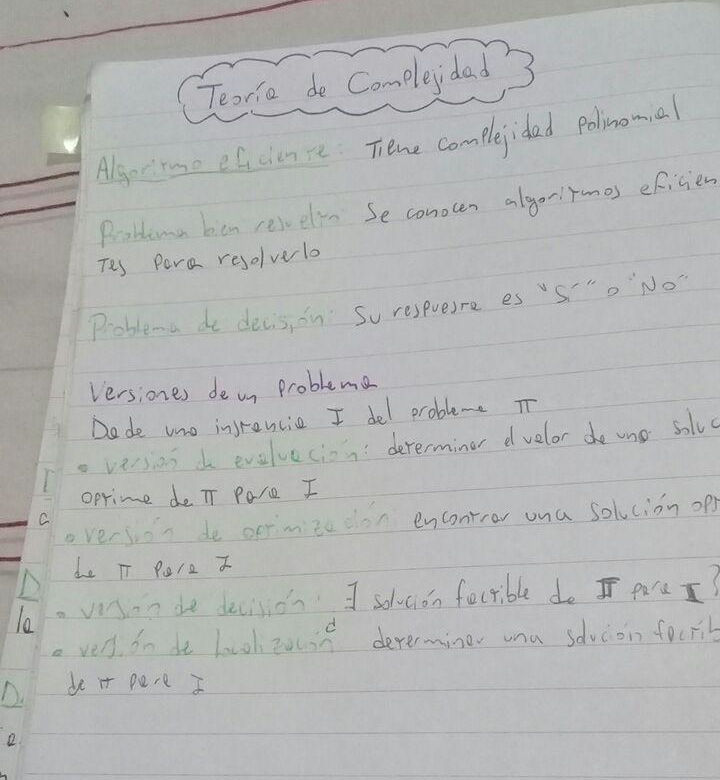 Teoría de Complejidad
Algoritmo eficiente: Tiene complejidad polinomial
Problema bien resuelto Se conocen algoritmos eficien
tes para resolverlo
Problema de decisión: Su respuesta es "Sí" o "No"
Versiones de un problema
Dada una instancia I del problema π
• versión de evaluación: determinar el valor de una soluc
óptima de π para I
• versión de optimización encontrar una solución opt
de π para I
• versión de decisión: ∃ solución factible de π para I?
• versión de localización determinar una solución factib
de π para I